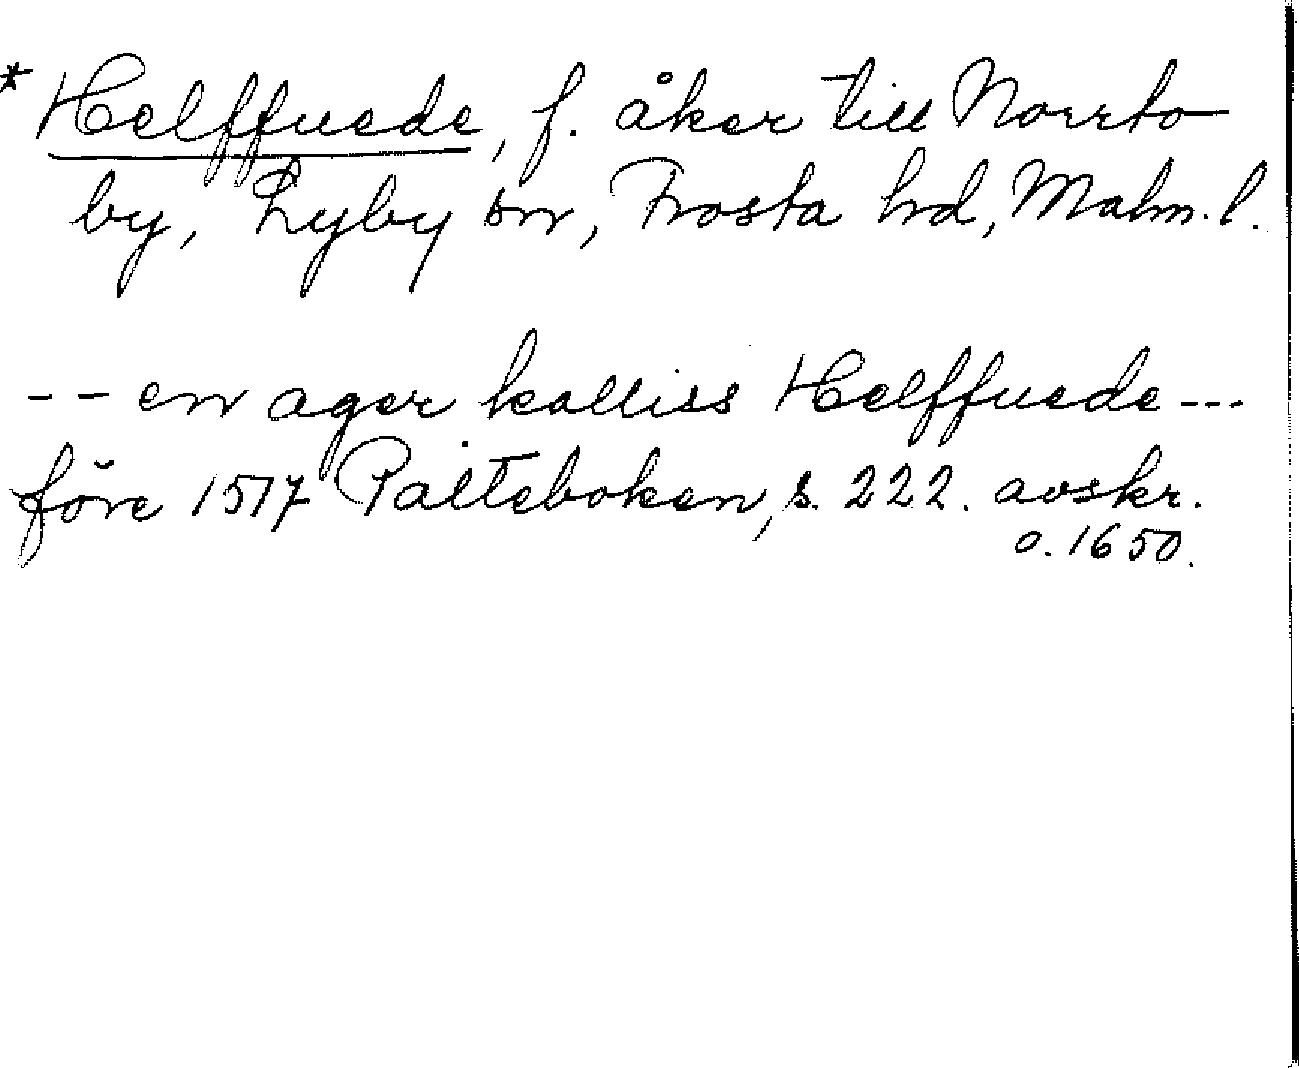 * Helffuede, f. åker till Norrto
by, Lyby sn, Frosta hd, Malm. l.
-- en ager kalliss Helffuede ---
före 1517 Palteboken, s. 222. avskr.
o. 1650.